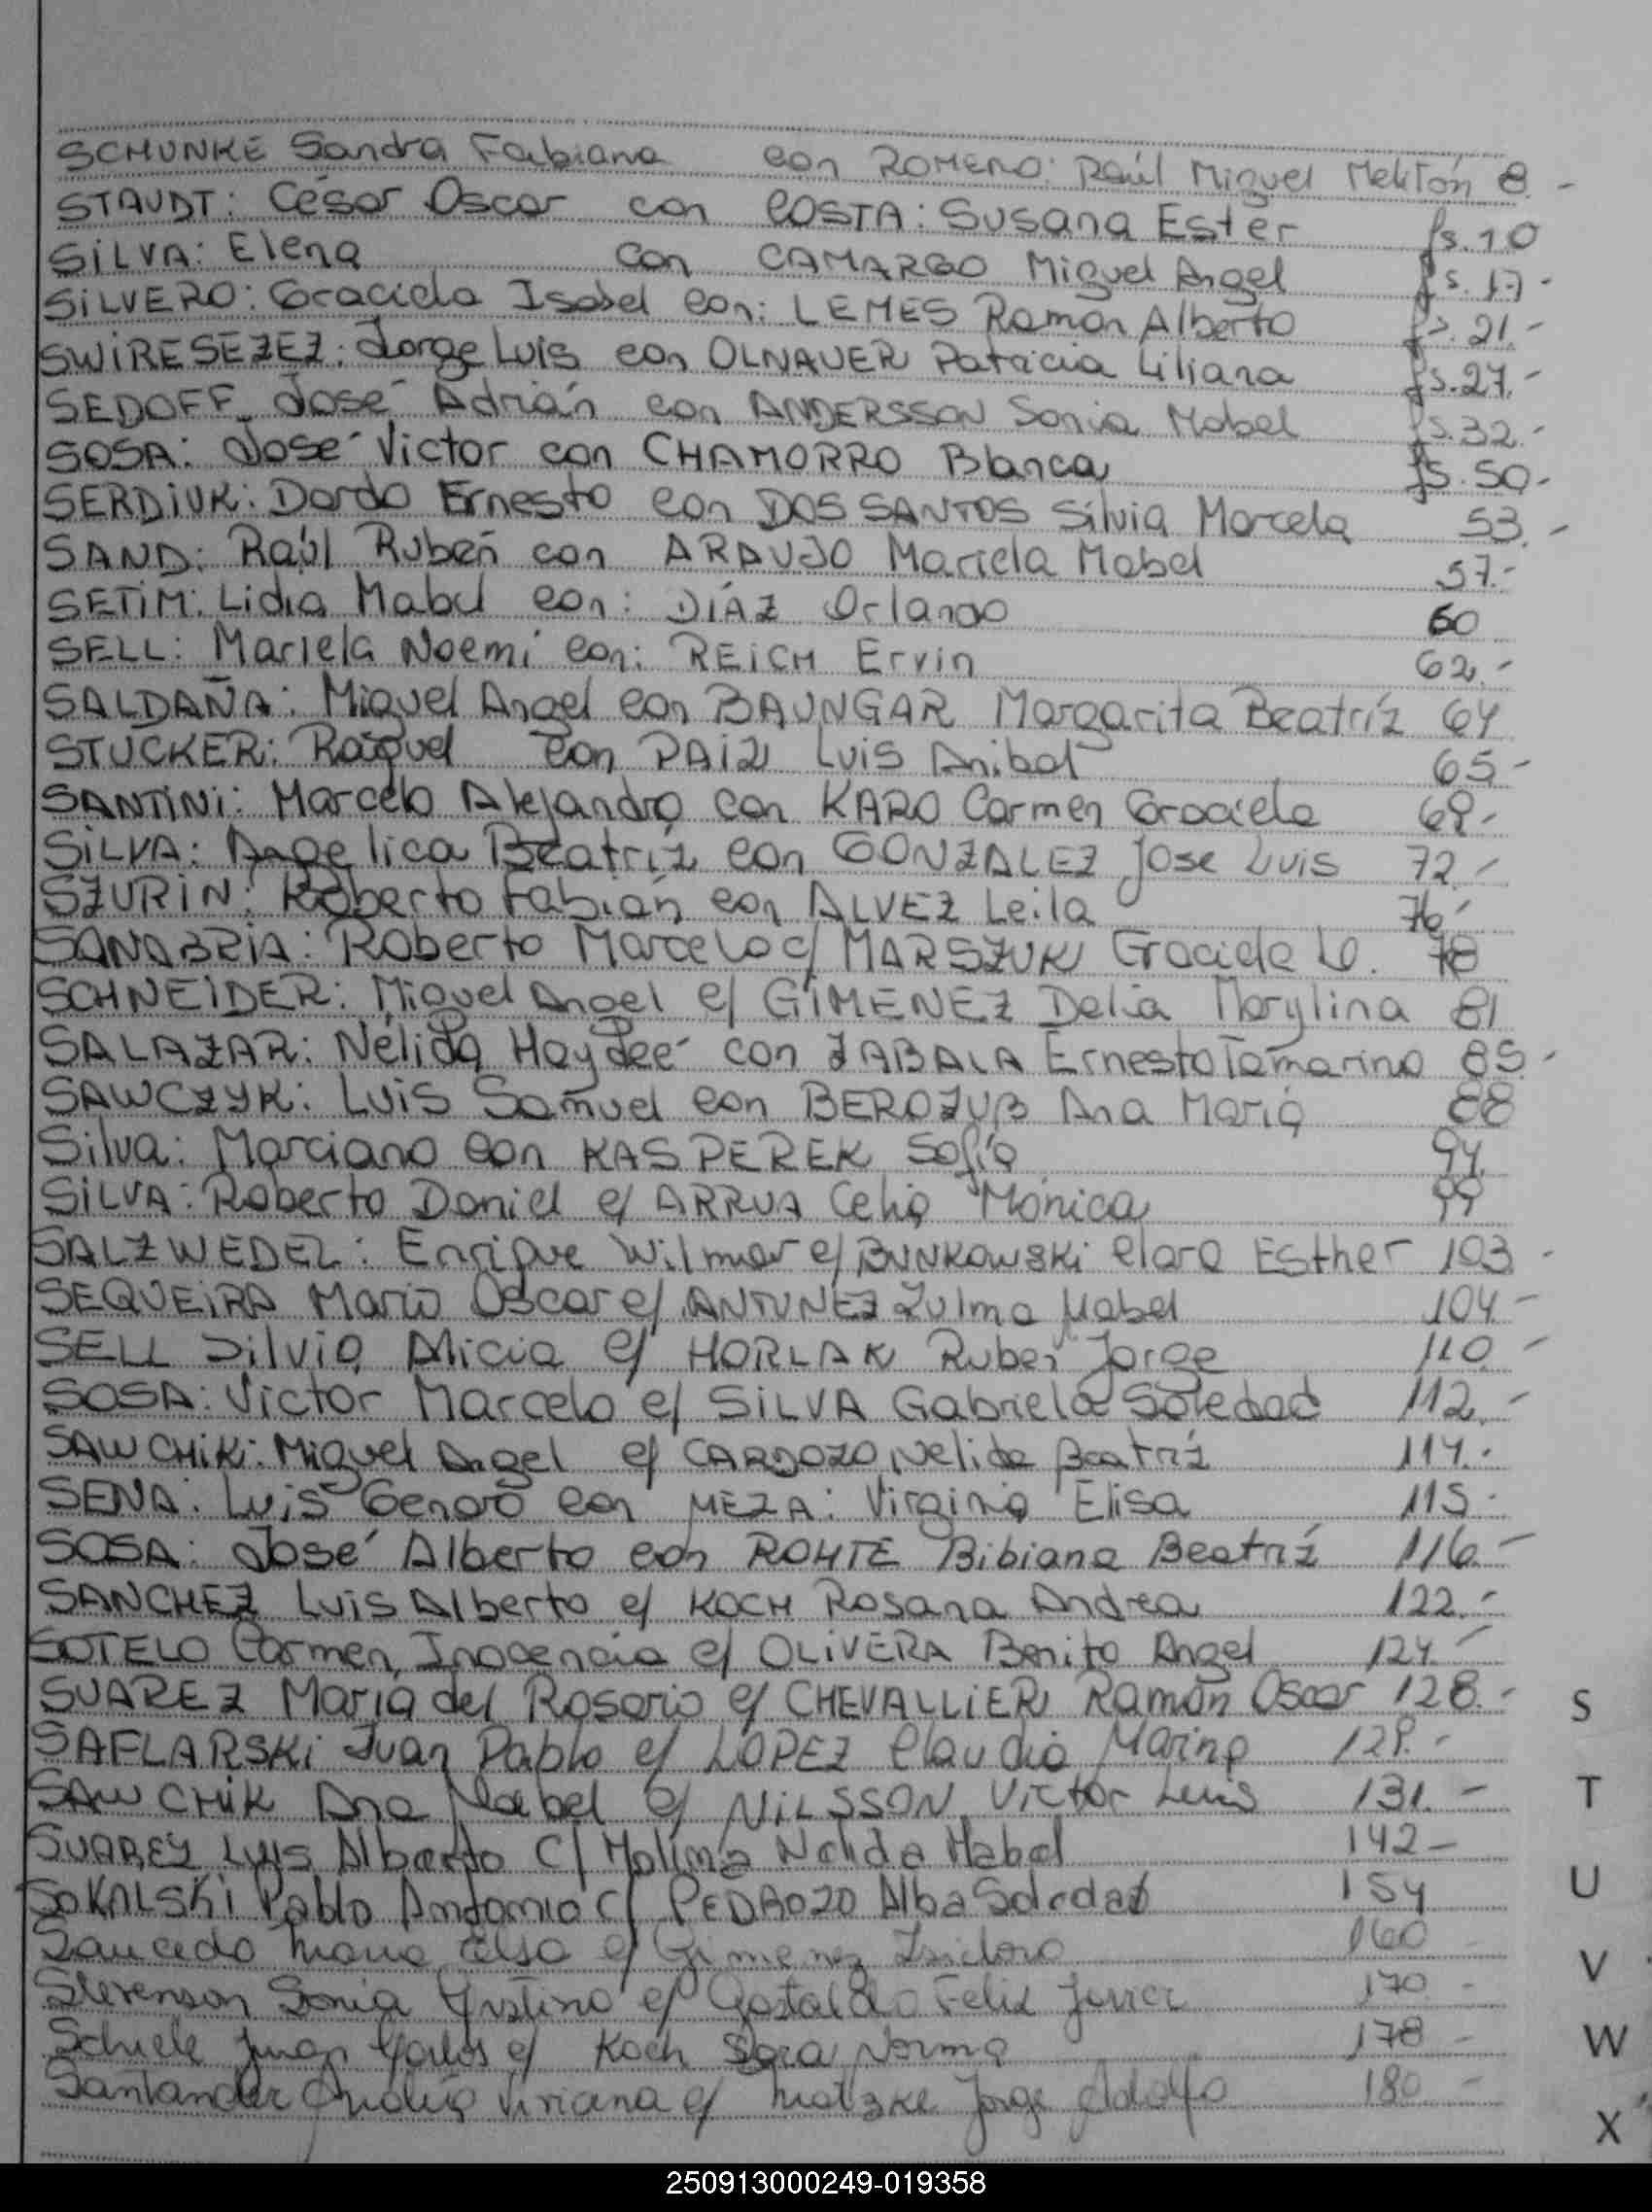 SCHUNKE Sandra Fabiana con ROMERO: Raúl Miguel Melitón 8.-
STAUDT: César Oscar con COSTA: Susana Ester fs. 10
SILVA: Elena con CAMARGO Miguel Angel fs. 17.-
SILVERO: Graciela Isabel con: LEMES Ramón Alberto fs. 21.-
SWIRESEZEZ: Jorge Luis con OLNAUER Patricia Liliana fs. 27.-
SEDOFF José Adrián con ANDERSSON Sonia Mabel fs. 32.-
SOSA: José Victor con CHAMORRO Blanca fs. 50.-
SERDIUK: Dardo Ernesto con DOS SANTOS Silvia Marcela 53.-
SAND: Raúl Rubén con ARAUJO Mariela Mabel 57.-
SETIM: Lidia Mabel con: DÍAZ Orlando 60
SELL: Mariela Noemí con: REICH Ervin 62.-
SALDAÑA: Miguel Angel con BAUNGAR Margarita Beatríz 64
STUCKER: Raquel con PAIZ Luis Anibal 65.-
SANTINI: Marcelo Alejandro con KARO Carmen Graciela 69.-
SILVA: Angelica Beatríz con GONZALEZ Jose Luis 72.-
SZURIN: Roberto Fabián con ALVEZ Leila 76.-
SANABRIA: Roberto Marcelo c/ MARSZUK Graciela L. 78
SCHNEIDER: Miguel Angel c/ GIMENEZ Delia Marylina 81
SALAZAR: Nélida Haydeé con ZABALA Ernesto Tamarino 85.-
SAWCZYK: Luis Samuel con BEROZUB Ana María 88
Silva: Marciano con KASPEREK Sofía 94.
SILVA: Roberto Daniel c/ ARRUA Celia Mónica 99
SALZWEDEL: Enrique Wilmar c/ BUNKOWSKI Clara Esther 103.-
SEQUEIRA Mario Oscar c/ ANTUNEZ Zulma Mabel 104.-
SELL Silvia Alicia c/ HORLAK Ruben Jorge 110.-
SOSA: Victor Marcelo c/ SILVA Gabriela Soledad 112.-
SAWCHIK: Miguel Angel c/ CARDOZO Nelida Beatríz 114.-
SENA: Luis Genaro con MEZA: Virginia Elisa 115.-
SOSA: José Alberto con ROHTE Bibiana Beatríz 116.-
SANCHEZ Luis Alberto c/ KOCH Rosana Andrea 122.-
SOTELO Carmen Inocencia c/ OLIVERA Benito Angel 124.-
SUAREZ María del Rosario c/ CHEVALLIER Ramón Oscar 128.-
SAFLARSKI Juan Pablo c/ LOPEZ Claudia Marina 129.-
SAWCHIK Ana Mabel c/ NILSSON Victor Luis 131.-
SUAREZ Luis Alberto C/ Molina Nelida Mabel 142-
SOKALSKI Pablo Antonio C/ PEDROZO Alba Soledad 154
Saucedo Maria Elsa c/ Gimenez Isidoro 160
Stevenson Sonia Cristina c/ Gastaldo Felix Javier 170.-
Schiele Juan Carlos c/ Koch Sara Norma 178.-
Santander Viviana c/ Matzke Jorge Adolfo 180.-
S
T
U
V
W
X
250913000249-019358